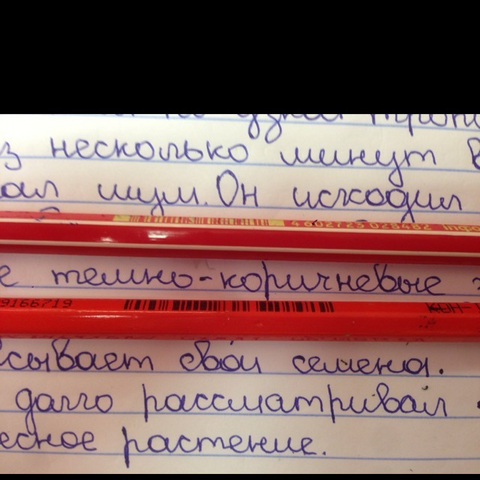 по узкой троп
з несколько минут в
ал шум. Он исходил
4 602723 023482
е темно-коричневые з
9166719
KOH-
сывает свои семена.
долго рассматривал
есное растение.